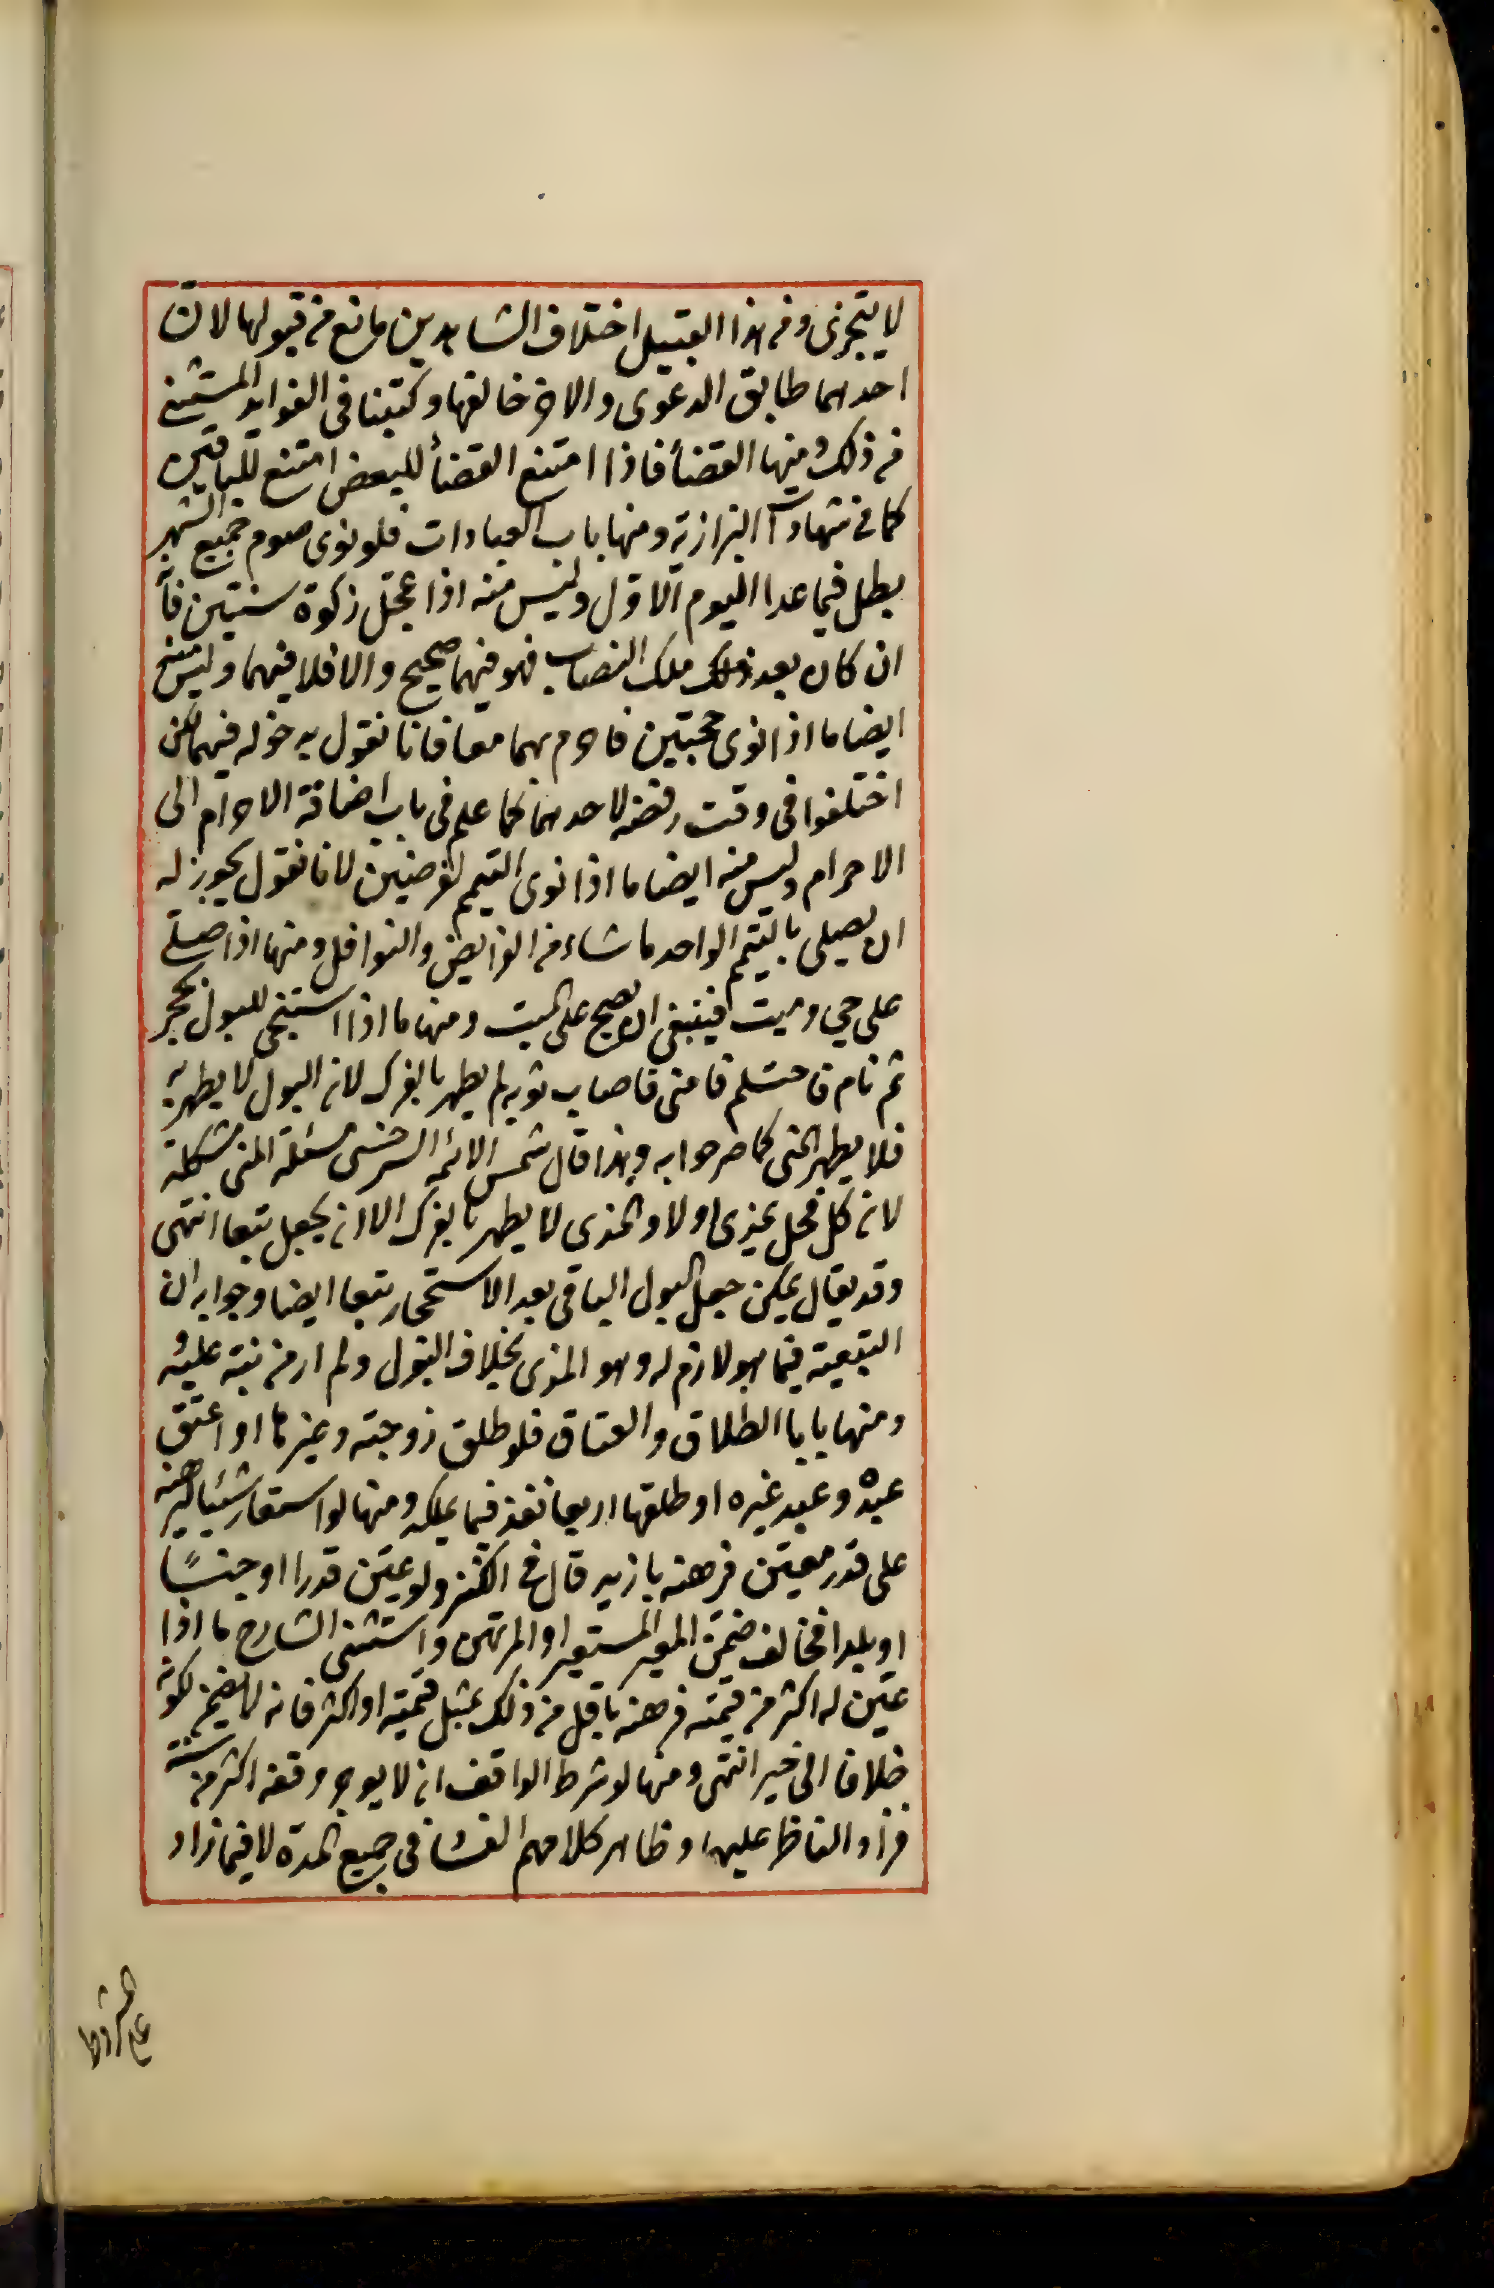 لا يتجزى ومن هذا القبيل اختلاف الشاهدين مانع من قبولها لان
احدهما طابق الدعوى والاخر خالفها وكتبنا فى الفوايد المستثنى
من ذلك ومنها القضأ فاذا امتنع القضأ للبعض امتنع للباقين
كما فى شهادت البزازية ومنها باب العبادات فلو نوى صوم جميع الشهر
بطل فيما عدا اليوم الاول وليس منه اذا عجل زكوة سنتين فأ
ان كان بعد ذلك ملك النصاب فهو فيهما صحيح والا فلا فيهما وليس منه
ايضا ما اذا نوى حجتين فاحرم بهما معا فانا نقول بدخوله فيهما لكن
اختلفوا فى وقت رفضه لاحدهما كما علم فى باب اضافة الاحرام الى
الاحرام وليس منه ايضا ما اذا نوى التيمم لفرضين لانا نقول يجوز له
ان يصلى بالتيمم الواحد ما شاء من الفرايض والنوافل ومنها اذا صلى
على حي وميت فينبغى ان يصح على الميت ومنها ما اذا استنجى للبول بحجر
ثم نام فاحتلم فامنى فاصاب ثوبه لم يطهر بالفرك لان البول لا يطهر به
فلا يطهر المنى كما صرحوا به وبهذا قال شمس الائمه السرخسى مسئلة المنى مشكلة
لان كل فحل يمذى اولا والمذى لا يطهر بالفرك الا ان يجعل تبعا انتهى
وقد يقال يمكن جعل البول الباقى بعد الاستجمار تبعا ايضا وجوابه ان
التبعية فيما هو لازم له وهو المذى بخلاف البول ولم ار من نبه عليه
ومنها بابا الطلاق والعتاق فلو طلق زوجته وغيرها او اعتق
عبده وعبد غيره او طلقها اربعا نفذ فيما يملكه ومنها لو استعار شيئا ليرهنه
على قدر معين فرهنه بازيد قال فى الكنز ولو عين قدرا او جنسًا
او بلدا فخالف ضمن المعير المستعير او المرتهن واستثنى الشارح ما اذا
عين له اكثر من قيمته فرهنه باقل من ذلك بمثل قيمته او اكثر فانه لا يضمن لكونه
خلافا الى خير انتهى ومنها لو شرط الواقف ان لا يوجر وقفه اكثر من سنة
فزاد الناظر عليها وظاهر كلامهم الفساد فى جميع المدة لا فيما زاد
على المشروط